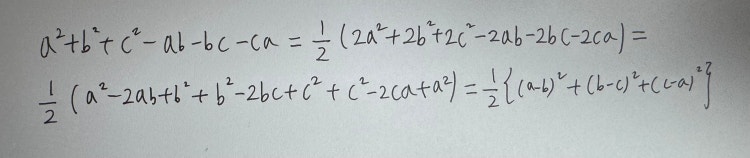 a²+b²+c²-ab-bc-ca = 1/2 (2a²+2b²+2c²-2ab-2bc-2ca) =
1/2 (a²-2ab+b²+b²-2bc+c²+c²-2ca+a²) = 1/2 {(a-b)²+(b-c)²+(c-a)²}